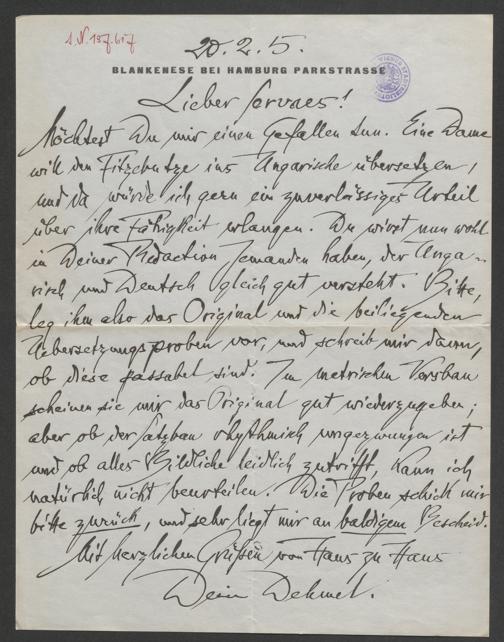 20.2.5.
BLANKENESE BEI HAMBURG PARKSTRASSE
Lieber Servaes!
Möchtest Du mir einen Gefallen tun. Eine Dame
will den Fitzebutze ins Ungarische übersetzen,
und da würde ich gern ein zuverlässiges Urteil
über ihre Fähigkeit erlangen. Du wirst nun wohl
in Deiner Redaction Jemanden haben, der Unga-
risch und Deutsch gleich gut versteht. Bitte,
leg ihm also das Original und die beiliegenden
Uebersetzungsproben vor, und schreib mir dann,
ob diese passabel sind. Im metrischen Versbau
scheinen sie mir das Original gut wiederzugeben;
aber ob der Satzbau rhythmisch ungezwungen ist
und ob alles Bildliche leidlich zutrifft, kann ich
natürlich nicht beurteilen. Die Proben schick mir
bitte zurück, und sehr liegt mir an baldigem Bescheid.
Mit herzlichen Grüßen von Haus zu Haus
Dein Dehmel.